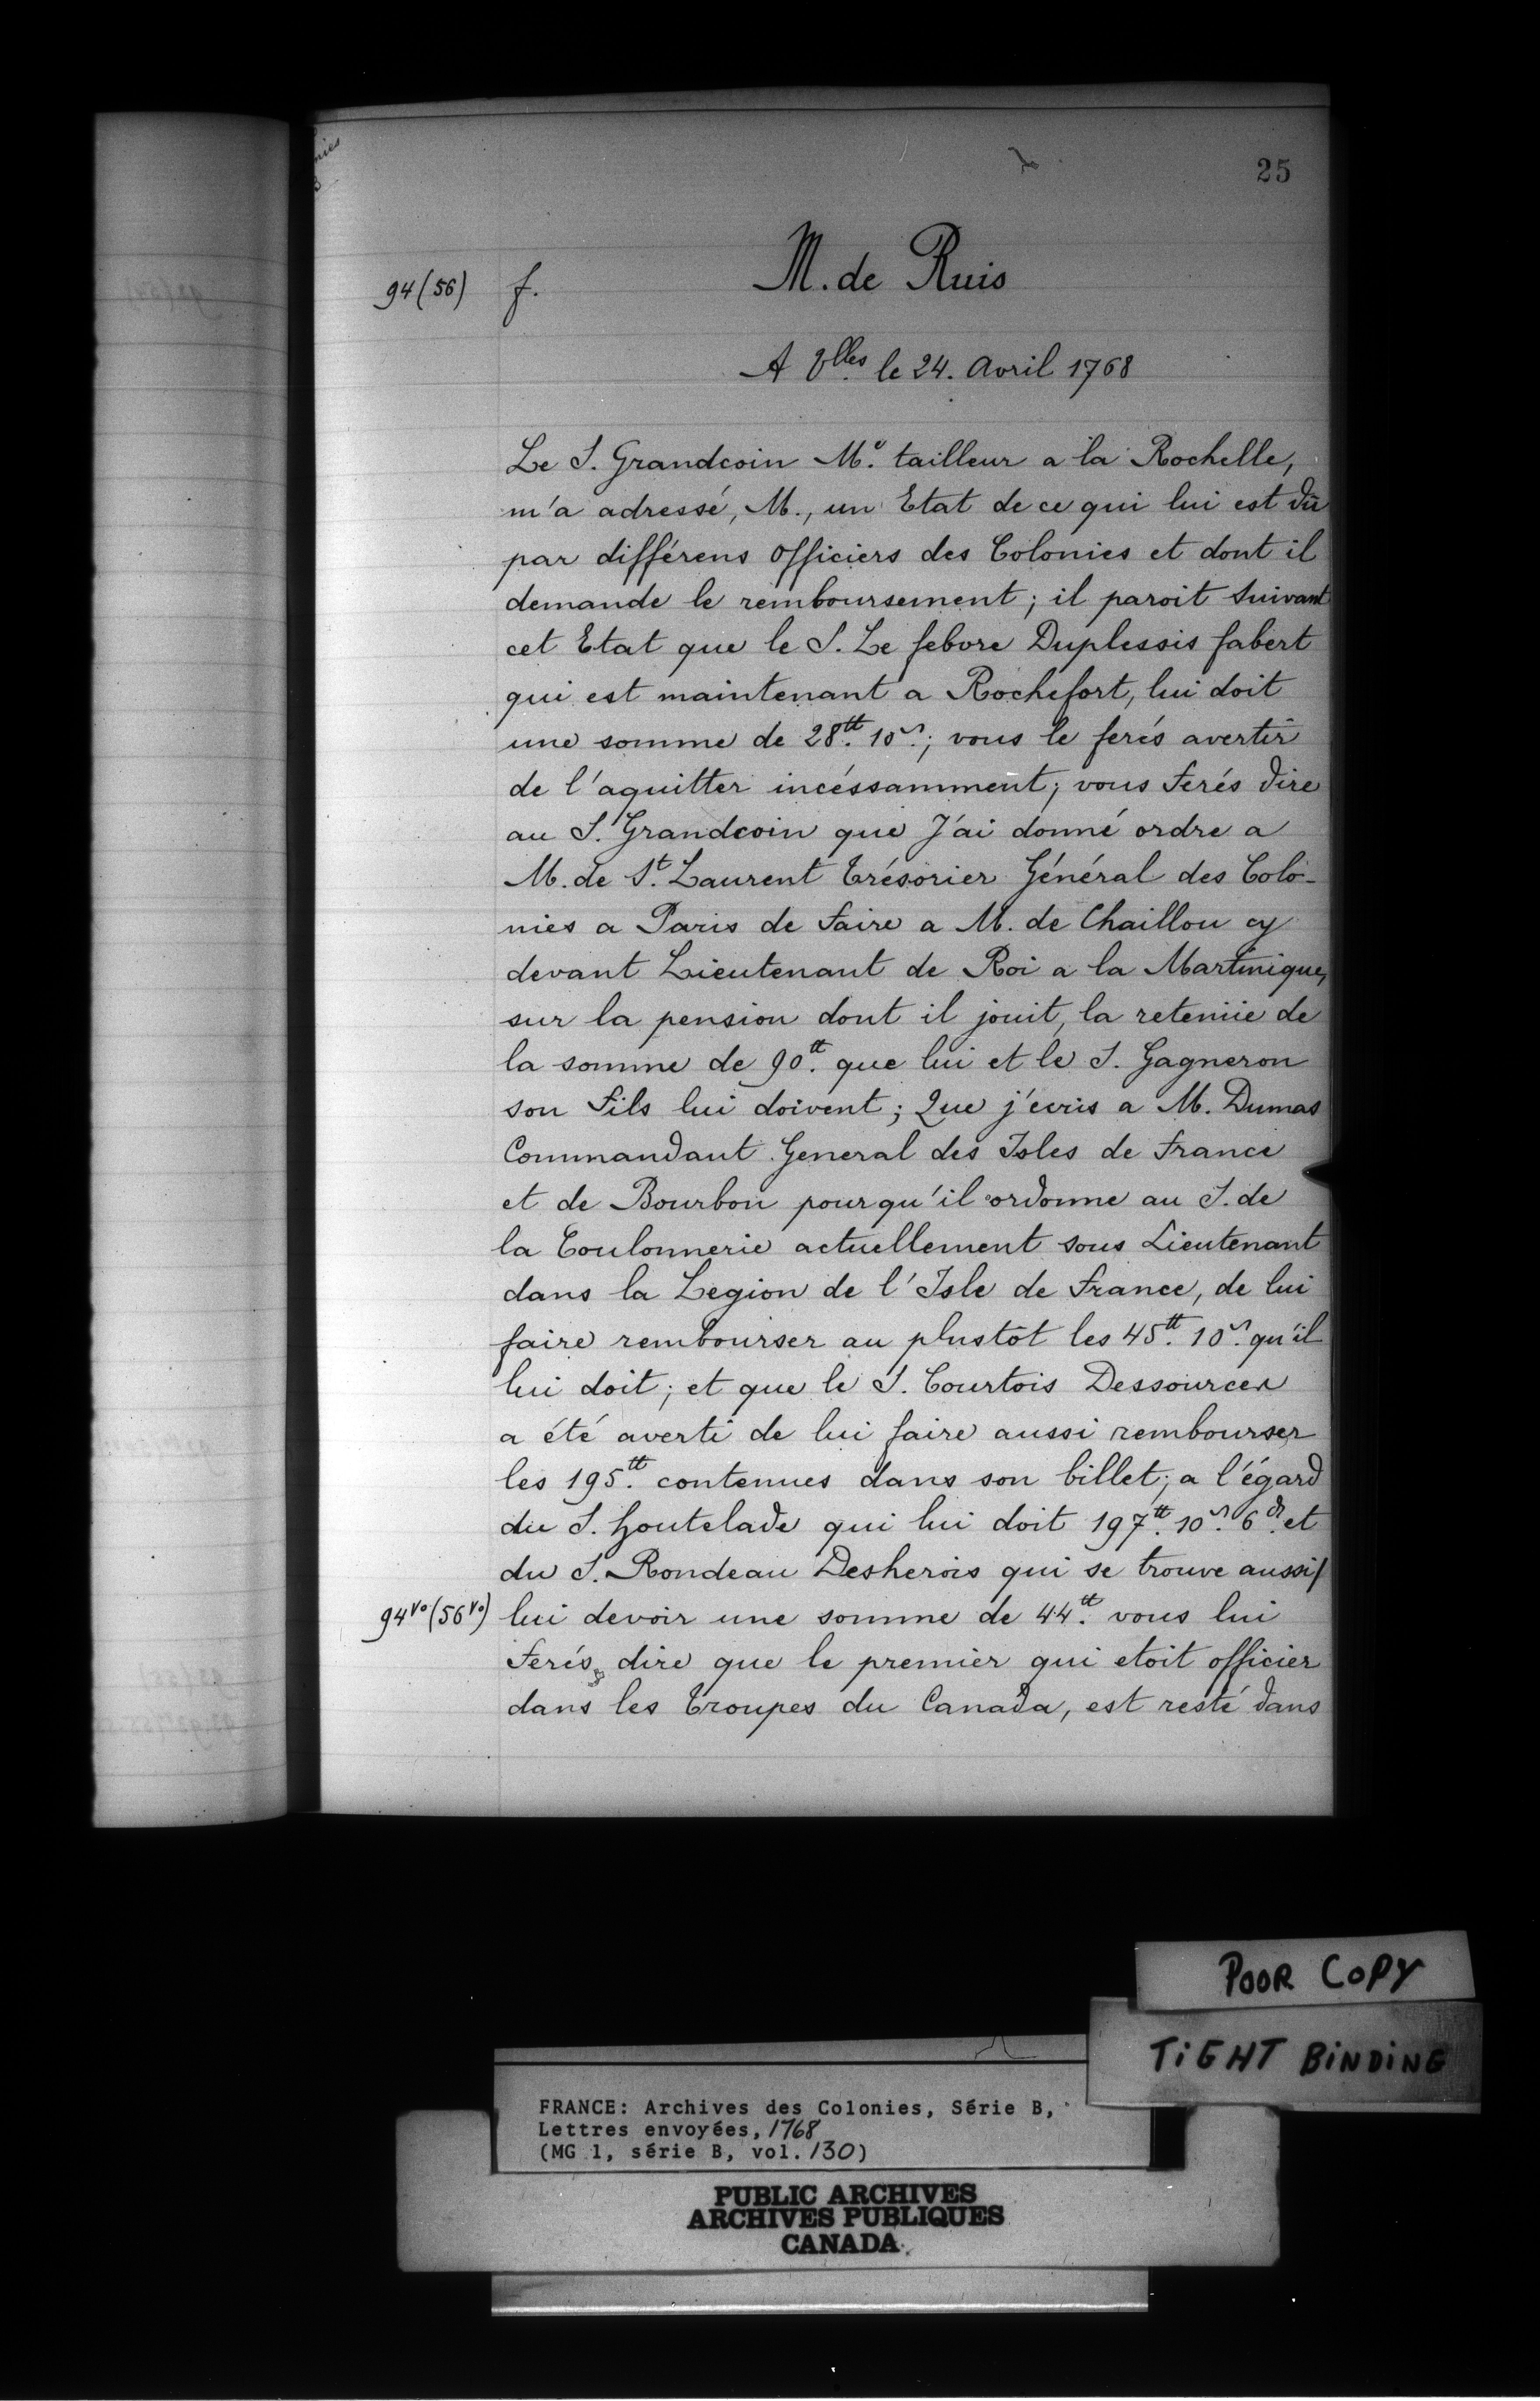 25
M. de Ruis
94 (56) f.
A Vlles. le 24. Avril 1768
Le S. Grandcoin Me. tailleur a la Rochelle,
m'a adressé, M., un Etat de ce qui lui est dû
par différens officiers des Colonies et dont il
demande le remboursement; il paroit suivant
cet Etat que le S. Le febvre Duplessis fabert
qui est maintenant a Rochefort, lui doit
une somme de 28tt. 10s.; vous le ferés avertir
de l'aquitter incéssamment; vous ferés dire
au S. Grandcoin que J'ai donné ordre a
M. de St. Laurent Trésorier Général des Colo-
nies a Paris de faire a M. de Chaillou cy
devant Lieutenant de Roi a la Martinique,
sur la pension dont il jouit, la retenüe de
la somme de 90tt. que lui et le S. Gagneron
son fils lui doivent; Que j'ecris a M. Dumas
Commandant General des Isles de france
et de Bourbon pour qu'il ordonne au S. de
la Coulonnerie actuellement sous Lieutenant
dans la Legion de l'Isle de france, de lui
faire rembourser au plustôt les 45tt. 10s. qu'il
lui doit; et que le S. Courtois Dessources
a été averti de lui faire aussi rembourser
les 195tt. contenues dans son billet; a l'égard
du S. houtelade qui lui doit 197tt. 10s. 6d. et
du S. Rondeau Desherois qui se trouve aussi/
94vo (56vo) lui devoir une somme de 44tt. vous lui
ferés dire que le premier qui etoit officier
dans les Troupes du Canada, est resté dans
POOR COPY
TIGHT BINDING
FRANCE: Archives des Colonies, Série B,
Lettres envoyées, 1768
(MG 1, série B, vol. 130)
PUBLIC ARCHIVES
ARCHIVES PUBLIQUES
CANADA